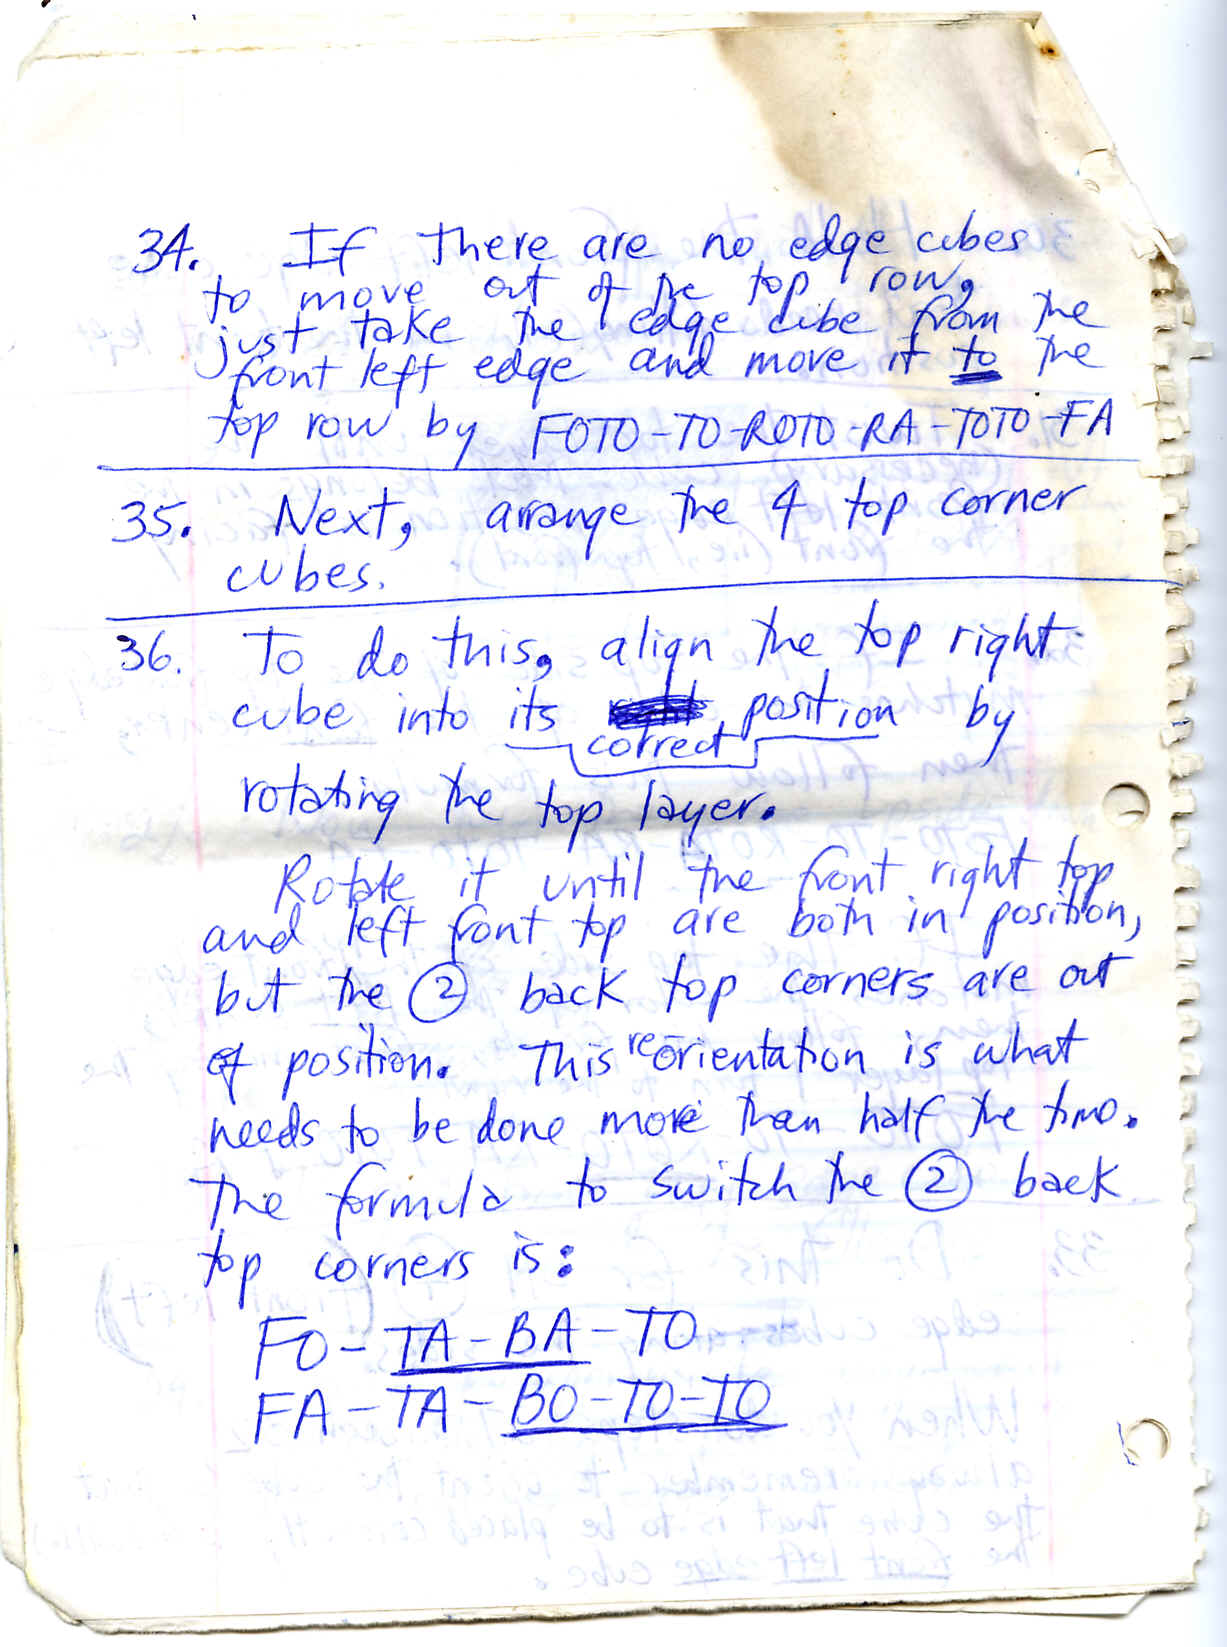 34. If there are no edge cubes
to move out of the top row,
just take the edge cube from the
front left edge and move it to the
top row by FOTO-TO-ROTO-RA-TOTO-FA
35. Next, arrange the 4 top corner
cubes.
36. To do this, align the top right
cube into its position by
correct
rotating the top layer.
Rotate it until the front right top
and left front top are both in position,
but the 2 back top corners are out
of position. This reorientation is what
needs to be done more than half the time.
The formula to switch the 2 back
top corners is:
FO-TA-BA-TO
FA-TA-BO-TO-TO